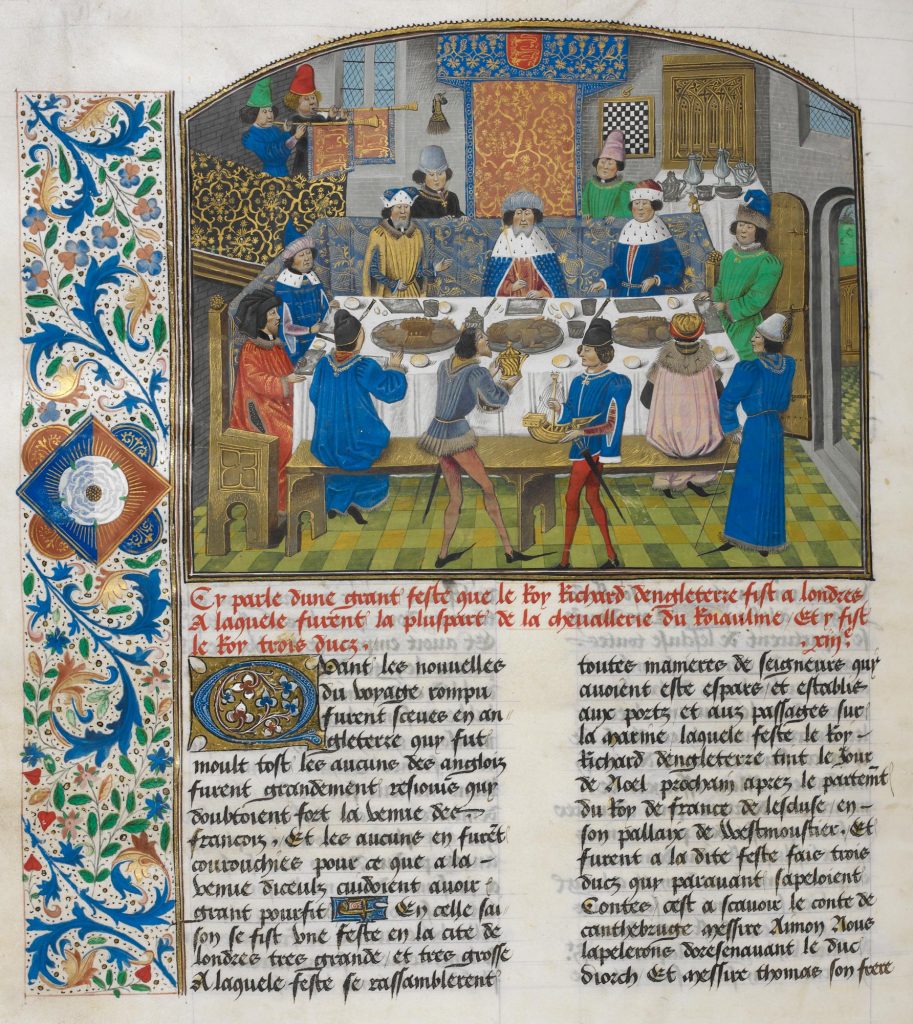 Cy parle dune grant feste que le Roy Richard dengleterre fist a londres
A laquele furent la pluspart de la chevallerie du Roiaulme, Et y fist
le Roy trois ducz. .xiiie.
Quant les nouvelles
du voyage rompu
furent sceues en an-
gleterre quy fut
moult tost les aucuns des anglois
furent grandement resiouis quy
doubtoient fort la venue des
francois, Et les aucuns en furēt
courouchies pour ce que a la
venue diceulz cuidoient avoir
grant pourfit En celle sai
son se fist une feste en la cite de
londres tres grande et tres grosse
A laquele feste se rassamblerent
toutes manieres de seigneurs quy
avoient este espars et establis
aux portz et aux passages sur
la marine laquele feste le Roy
Richard dengleterre tint le Jour
de Noel prochain aprez le partemt
du Roy de france de lescluse en
son pallaix de Westmoustier. Et
furent a la dite feste fais trois
ducz quy paravant sapeloient
Contes, cest a scavoir le conte de
canthebruge messire Aimon Nous
lapelerons doresenavant le duc
diorch Et messire thomas son frere